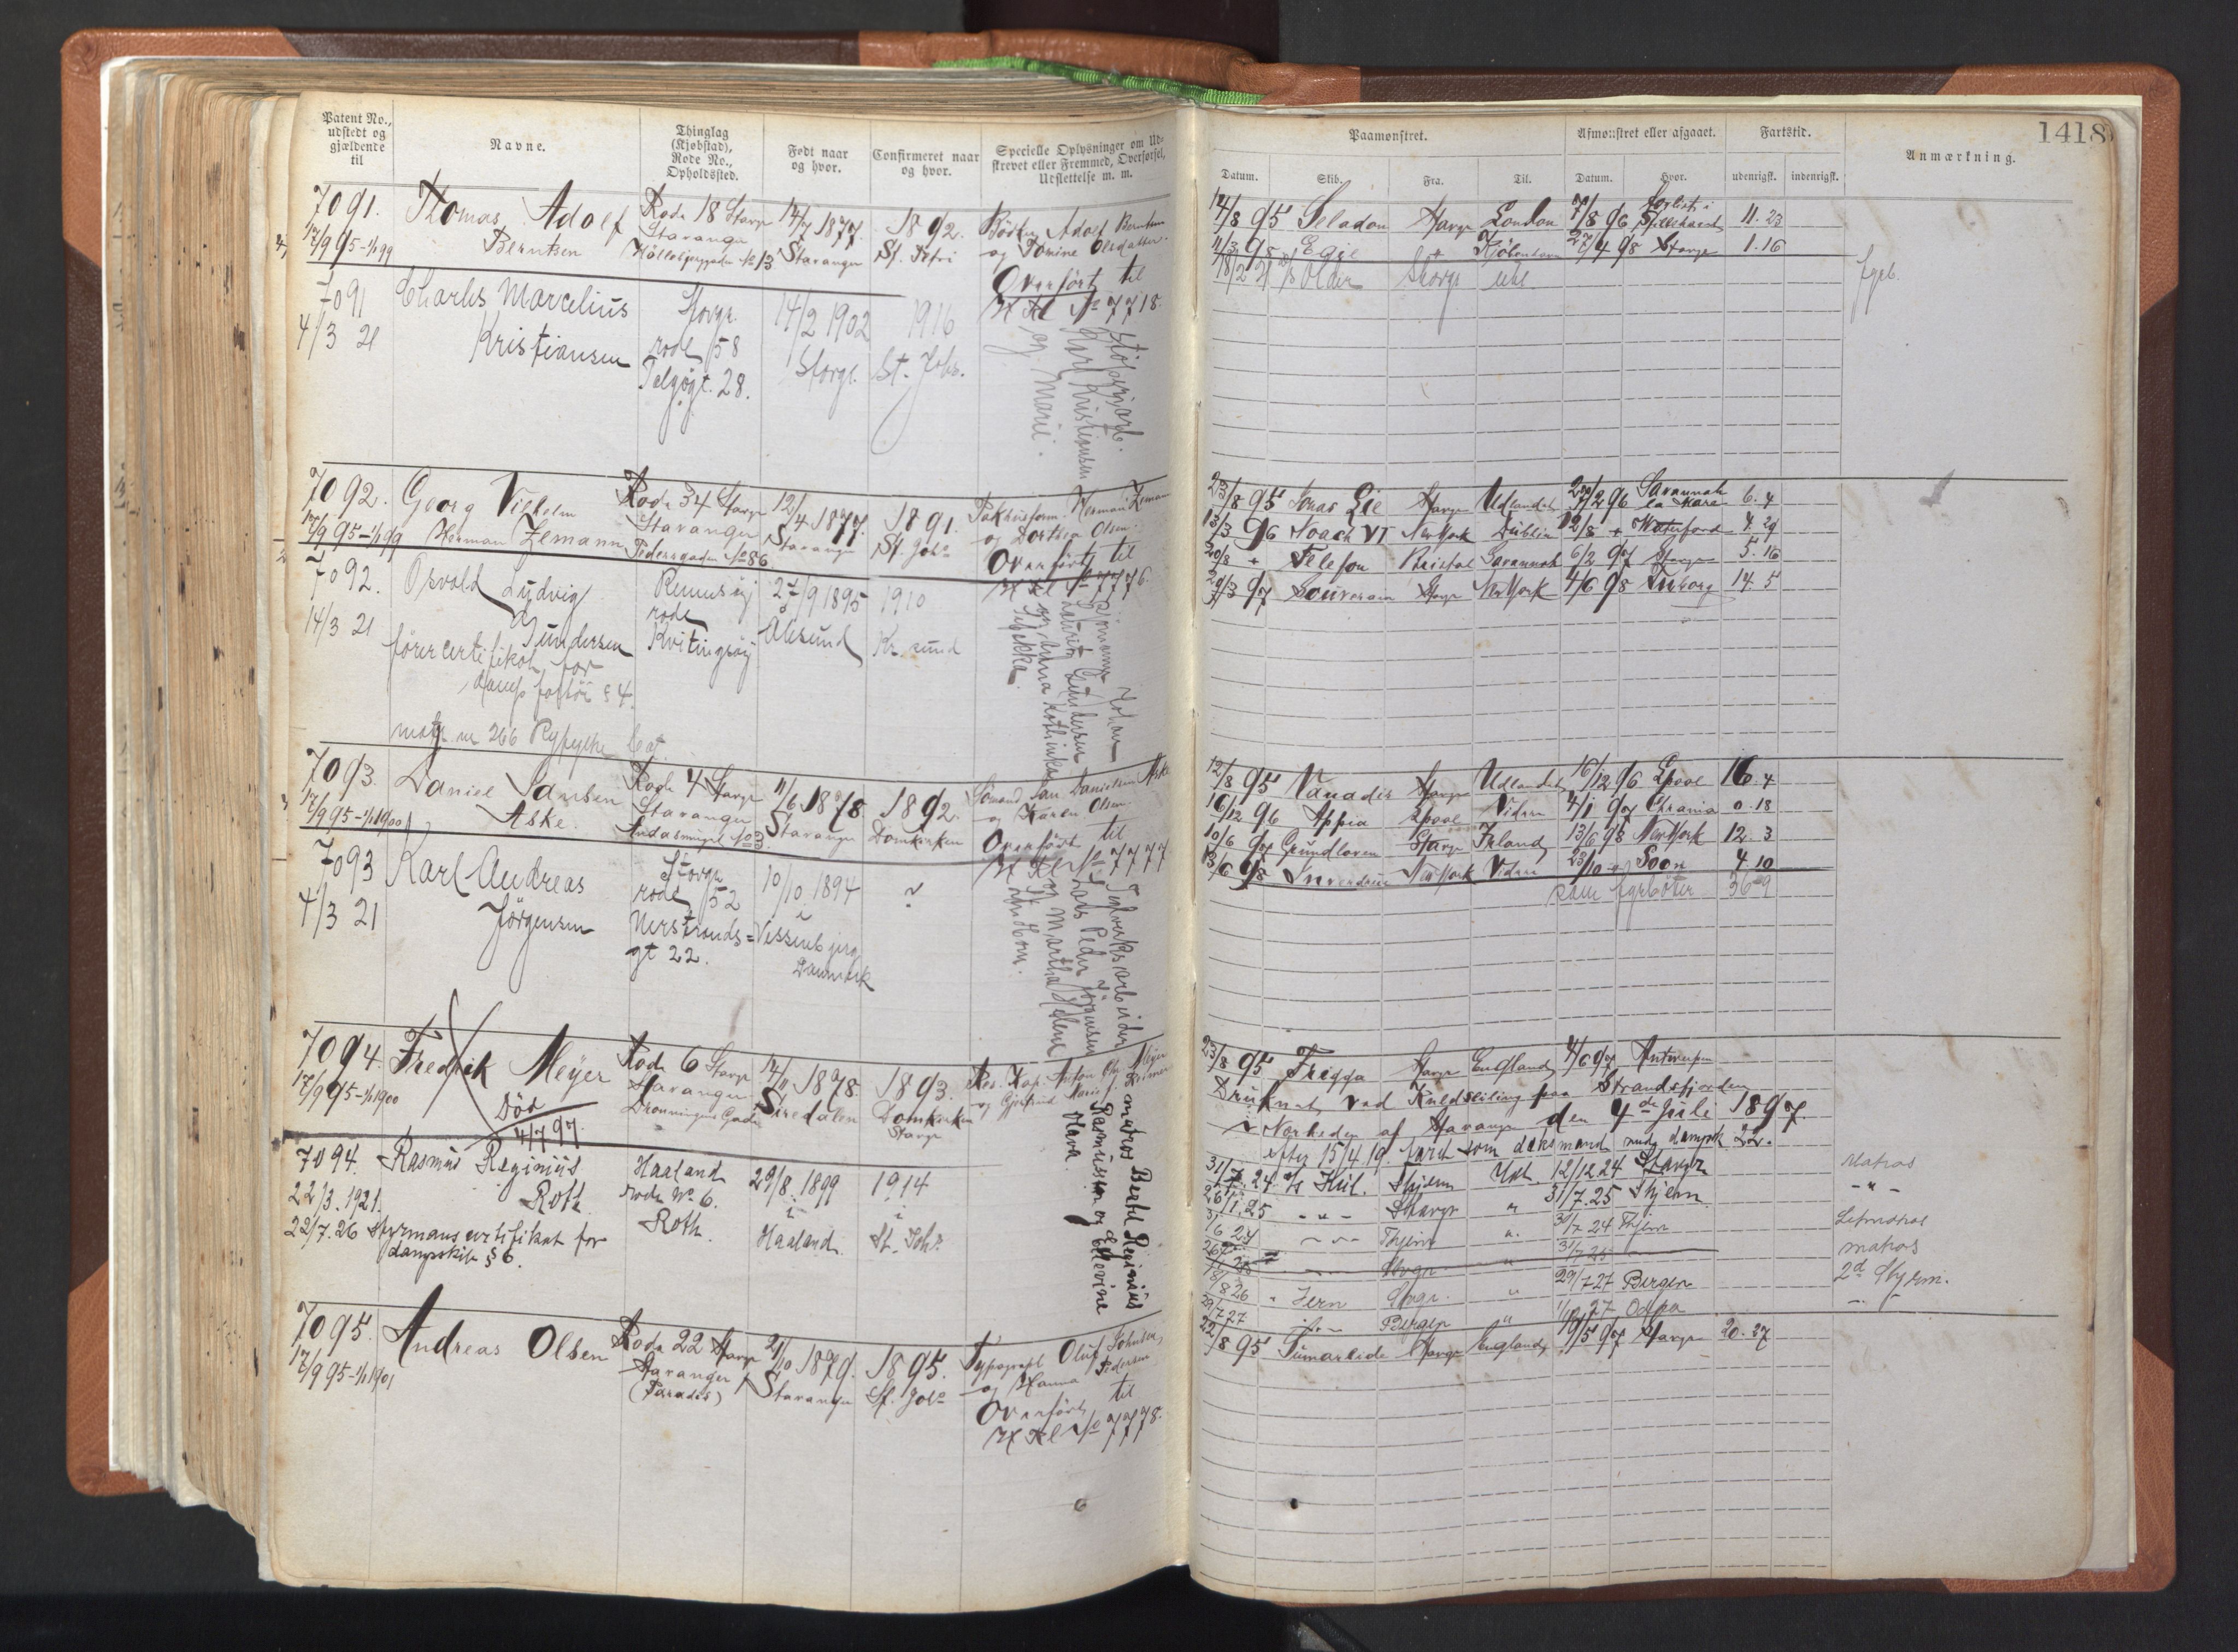 Patent No.,
udstedt og
gjældende
til
Navne.
Thinglag
(Kjøbstad),
Rode No.,
Opholdssted.
Født naar
og hvor.
Confirmeret naar
og hvor.
Specielle Oplysninger om Ud-
skrevet eller Fremmed, Overførsel,
Udslettelse m. m.
7091.
17/9 95 - 1/1 99
Thomas Adolf
Berntsen
Rode 18 Stavgr
Stavanger
No 13
14/7 1877.
Stavanger
1892.
St. Petri
Bødker Adolf Berntsen
og Tomine Olsdatter.
Overført til
H Kl No 7718.
7091
4/3 21
Charles Marcelius
Kristiansen
Stavgr.
rode 58
Telgjøgt. 28.
14/2 1902
Stavgr.
1916
St. Johs.
Karl Kristiansen
og Marie.
7092.
17/9 95 - 1/1 99
Georg Vilhelm
Herman Zemann
Rode 34 Stavgr
Stavanger
Pedersgaden No 86
12/4 1877.
Stavanger
1891.
St. Johs
Pakhusform. Herman Zemann
og Dorthea Olsen.
Overført til
H Kl No 7776.
7092.
14/3 21
Osvald Ludvig
Gundersen
førercertifikat for
dampfartøi § 4.
Rennesøy
rode
Kvitingsøy
27/9 1895
Ålesund
1910
Kr. sund
Rømning Johan
Lauritz Gundersen
og Anna Kathinka
Rebekka.
7093.
17/9 95 - 1/1 1900
Daniel Jansen
Aske.
Rode 4 Stavgr
Stavanger
Andasmuget No 3.
11/6 1878.
Stavanger
1892.
Domkirken
Sømand Jan Danielsen Aske
og Karen Olsen.
Overført til
H Kl No 7777
7093
4/3 21
Karl Andreas
Jørgensen
Stavgr
rode 52
Nerstrands=
gt 22.
10/10. 1894
Vissenbjerg
Danmark
?
Teglverksarbeider
Lars Peder Jørgensen
og Martha Helene
7094.
17/9 95 - 1/1 1900
Fredrik Meyer
Død
4/7 97.
Rode 6 Stavgr
Stavanger
Dronningens Gade
14/11 1878.
Siredalen
1893.
Domkirken
Stavgr
Res. Kap. Anton Chr. Meyer
7094.
22/3. 1921.
Rasmus Reginius
Roth.
22/7. 26 styrmanscertifikat for
dampskibe § 6.
Haaland
rode No 6.
Roth.
29/8. 1899
i
Haaland.
1914
i
St. Johs.
matros Bertel Reginius
Rasmussen og Ellevine
Hava.
7095.
17/9 95 - 1/1 1901
Andreas Olsen
Rode 22 Stavgr
Stavanger
(Paradis)
21/10 1879.
Stavanger
1895.
St. Johs
Typograf Oluf Johnsen,
og Hanna Pedersen
Overført til
H Kl No 7778.
1418
Paamønstret.
Afmønstret eller afgaaet.
Fartstid.
Anmærkning.
Datum.
Skib.
Fra.
Til.
Datum.
Hvor.
udenrigsk.
indenrigsk.
Forlist i
14/8 95 Seladon Stavgr London 7/8 96 Stillehavet 11. 23
11/3 95 Egil " Kjøbenhavn 27/4 98 Stavgr 1. 16
18/2 21 Older Stavgr utl. fyrb.
23/8 95 Jonas Lie Stavgr Udlandet 29/2 96 Savannah la Mara 6. 4
13/3 96 Noach VI New York Dublin 12/8 " Waterford 4. 29
20/8 " Telefon Bristol Savannah 6/2 97 Stavgr 5. 16
29/3 97 Souverain Stavgr New York 4/6 98 14. 5
12/8 95 Vanadis Stavgr Udlandet 16/12 96 Lpool 16. 4
16/12 96 Appia Lpool Videre 4/1 97 Chrania 0. 18
10/6 97 Grundloven Stavgr Irland 13/6 98 New York 12. 3
13/6 98 New York Videre 23/10 " Soon 4. 10
som fyrbøter 36-9
23/8 95 Frigga Stavgr England 4/6 97 Antwerpen
Druknet ved Kuldseiling paa Strandsfjorden
i Nærheden af Stavanger den 4de Juli 1897.
efter 15/4 19. faret som dæksmand
31/7. 24. Stjern Utl. 12/12 24 Stavgr. Matros
26/1. 25 - " - Stavgr " 31/7. 25 Stjern - " -
Letmatros
matros
8/26 " Jern Stavgr. " 29/7 27 Bergen 2d Styrm.
29/7 27 Bergen " 27
22/8 95 Sumarlide Stavgr England 19/5 97 Stavgr 20. 27